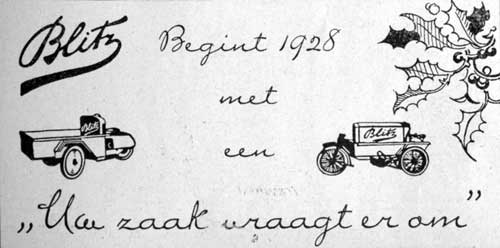 Blitz
Begint 1928
met
een
Blitz
Blitz
„Uw zaak vraagt er om”